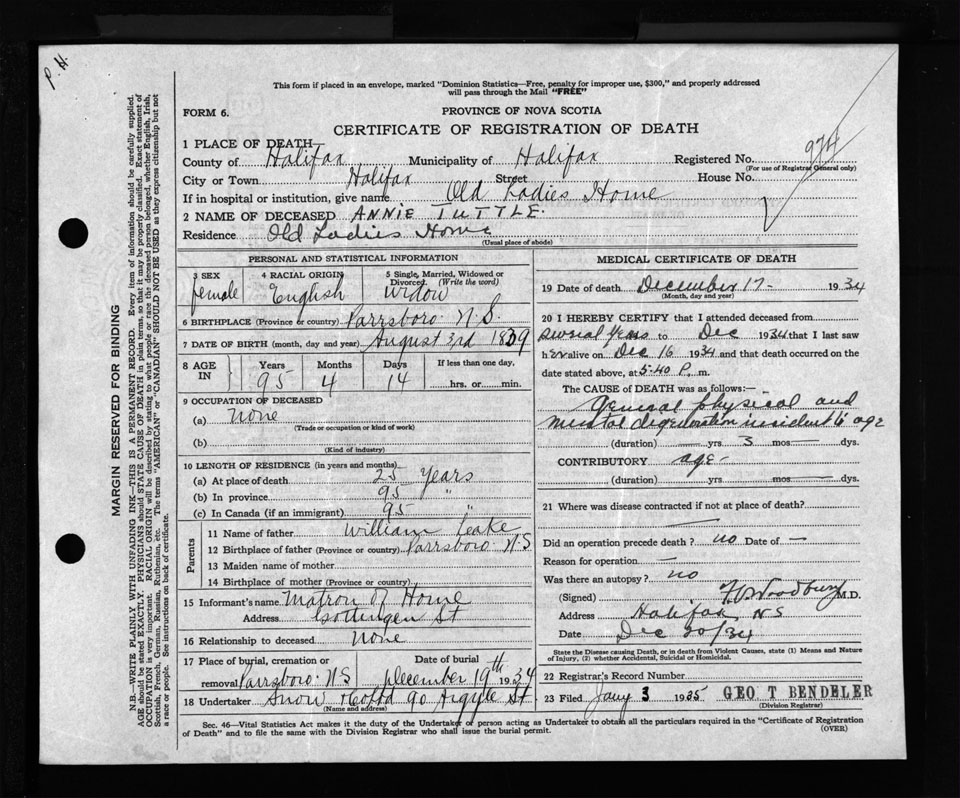 P. H.
This form if placed in an envelope, marked "Dominion Statistics—Free, penalty for improper use, $300," and properly addressed
will pass through the Mail "FREE"
FORM 6.
PROVINCE OF NOVA SCOTIA
CERTIFICATE OF REGISTRATION OF DEATH
974
1 PLACE OF DEATH
County of Halifax Municipality of Halifax Registered No.
(For use of Registrar General only)
City or Town Halifax Street House No.
If in hospital or institution, give name Old Ladies Home
2 NAME OF DECEASED ANNIE TUTTLE.
Residence Old Ladies Home
(Usual place of abode)
PERSONAL AND STATISTICAL INFORMATION
3 SEX 4 RACIAL ORIGIN 5 Single, Married, Widowed or
Divorced. (Write the word)
female English Widow
6 BIRTHPLACE (Province or country) Parrsboro. N.S.
7 DATE OF BIRTH (month, day and year) August 3rd 1839
8 AGE IN Years Months Days If less than one day,
95 4 14 hrs. or min.
9 OCCUPATION OF DECEASED
(a) None
(Trade or occupation or kind of work)
(b)
(Kind of industry)
10 LENGTH OF RESIDENCE (in years and months)
(a) At place of death 25 Years
(b) In province 95 "
(c) In Canada (if an immigrant) 95 "
Parents
11 Name of father William Leake
12 Birthplace of father (Province or country) Parrsboro. N.S
13 Maiden name of mother
14 Birthplace of mother (Province or country)
15 Informant's name Matron of Home
Address Gottingen St
16 Relationship to deceased None
17 Place of burial, cremation or Date of burial
removal Parrsboro. N.S December 19th 1934
18 Undertaker Snow & Co Ltd 90 Argyle St
(Name and address)
MEDICAL CERTIFICATE OF DEATH
19 Date of death December 17- 1934
(Month, day and year)
20 I HEREBY CERTIFY that I attended deceased from
Several Years to Dec 1934 that I last saw
her alive on Dec 16 1934 and that death occurred on the
date stated above, at 5.40 P. m.
The CAUSE OF DEATH was as follows:—
General physical and
mental degeneration incident to age
(duration) — yrs 3 mos — dys.
CONTRIBUTORY age -
(duration) yrs. mos. dys.
21 Where was disease contracted if not at place of death?
Did an operation precede death? no Date of —
Reason for operation —
Was there an autopsy? no
(Signed) F V Woodbury M.D.
Address Halifax, NS
Date Dec 20/34
State the Disease causing Death, or in death from Violent Causes, state (1) Means and Nature
of Injury, (2) whether Accidental, Suicidal or Homicidal.
22 Registrar's Record Number
23 Filed Jany 3 1935 GEO T BENDELER
(Division Registrar)
Sec. 46—Vital Statistics Act makes it the duty of the Undertaker or person acting as Undertaker to obtain all the particulars required in the "Certificate of Registration
of Death" and to file the same with the Division Registrar who shall issue the burial permit.
(OVER)
MARGIN RESERVED FOR BINDING
N.B.—WRITE PLAINLY WITH UNFADING INK—THIS IS A PERMANENT RECORD. Every item of information should be carefully supplied.
AGE should be stated EXACTLY. PHYSICIANS should STATE CAUSE OF DEATH in plain terms, so that it may be properly classified. Exact statement of
OCCUPATION is very important. RACIAL ORIGIN will be described by stating to what people or race the deceased person belonged, whether English, Irish,
Scottish, French, German, Russian, Ruthenian, etc. The terms "AMERICAN" or "CANADIAN" SHOULD NOT BE USED as they express citizenship but not
a race or people. See instructions on back of certificate.